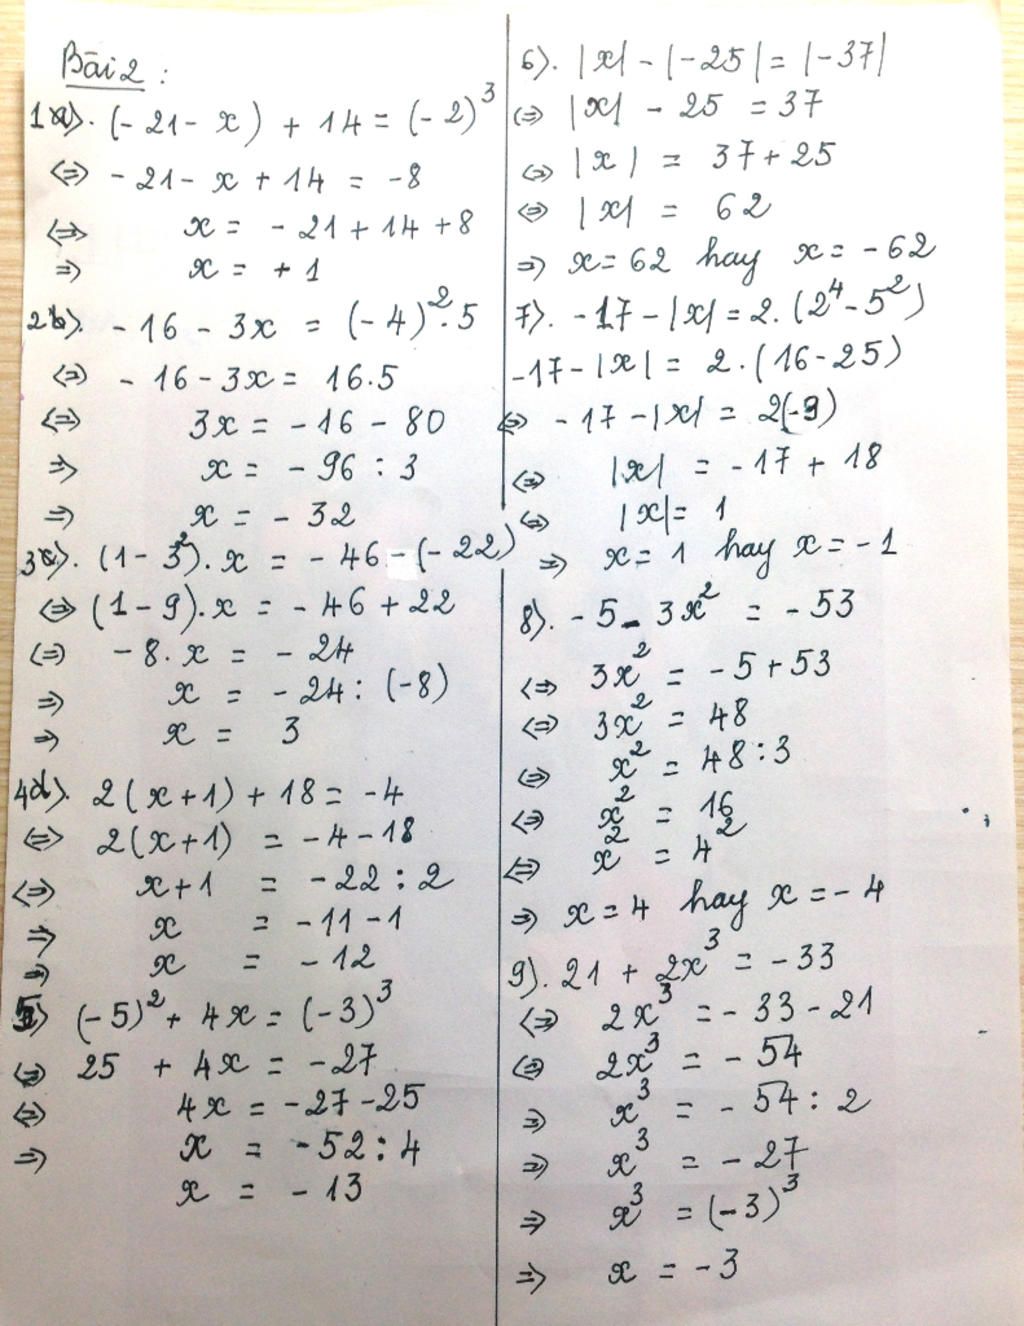 Bài 2 :
1a). (-21 - x) + 14 = (-2)³
<=> -21 - x + 14 = -8
<=> x = -21 + 14 + 8
=> x = +1
2b). -16 - 3x = (-4)².5
<=> -16 - 3x = 16.5
<=> 3x = -16 - 80
=> x = -96 : 3
=> x = -32
3c). (1 - 3²).x = -46 - (-22)
<=> (1 - 9).x = -46 + 22
<=> -8.x = -24
=> x = -24 : (-8)
=> x = 3
4d). 2(x+1) + 18 = -4
<=> 2(x+1) = -4 - 18
<=> x+1 = -22 : 2
=> x = -11 - 1
=> x = -12
5) (-5)² + 4x = (-3)³
<=> 25 + 4x = -27
<=> 4x = -27 - 25
=> x = -52 : 4
x = -13
6). |x| - |-25| = |-37|
<=> |x| - 25 = 37
<=> |x| = 37 + 25
<=> |x| = 62
=> x = 62 hay x = -62
7). -17 - |x| = 2.(2⁴ - 5²)
-17 - |x| = 2.(16 - 25)
<=> -17 - |x| = 2(-9)
<=> |x| = -17 + 18
<=> |x| = 1
=> x = 1 hay x = -1
8). -5 - 3x² = -53
<=> 3x² = -5 + 53
<=> 3x² = 48
<=> x² = 48 : 3
<=> x² = 16
<=> x² = 4²
=> x = 4 hay x = -4
9). 21 + 2x³ = -33
<=> 2x³ = -33 - 21
<=> 2x³ = -54
=> x³ = -54 : 2
=> x³ = -27
=> x³ = (-3)³
=> x = -3